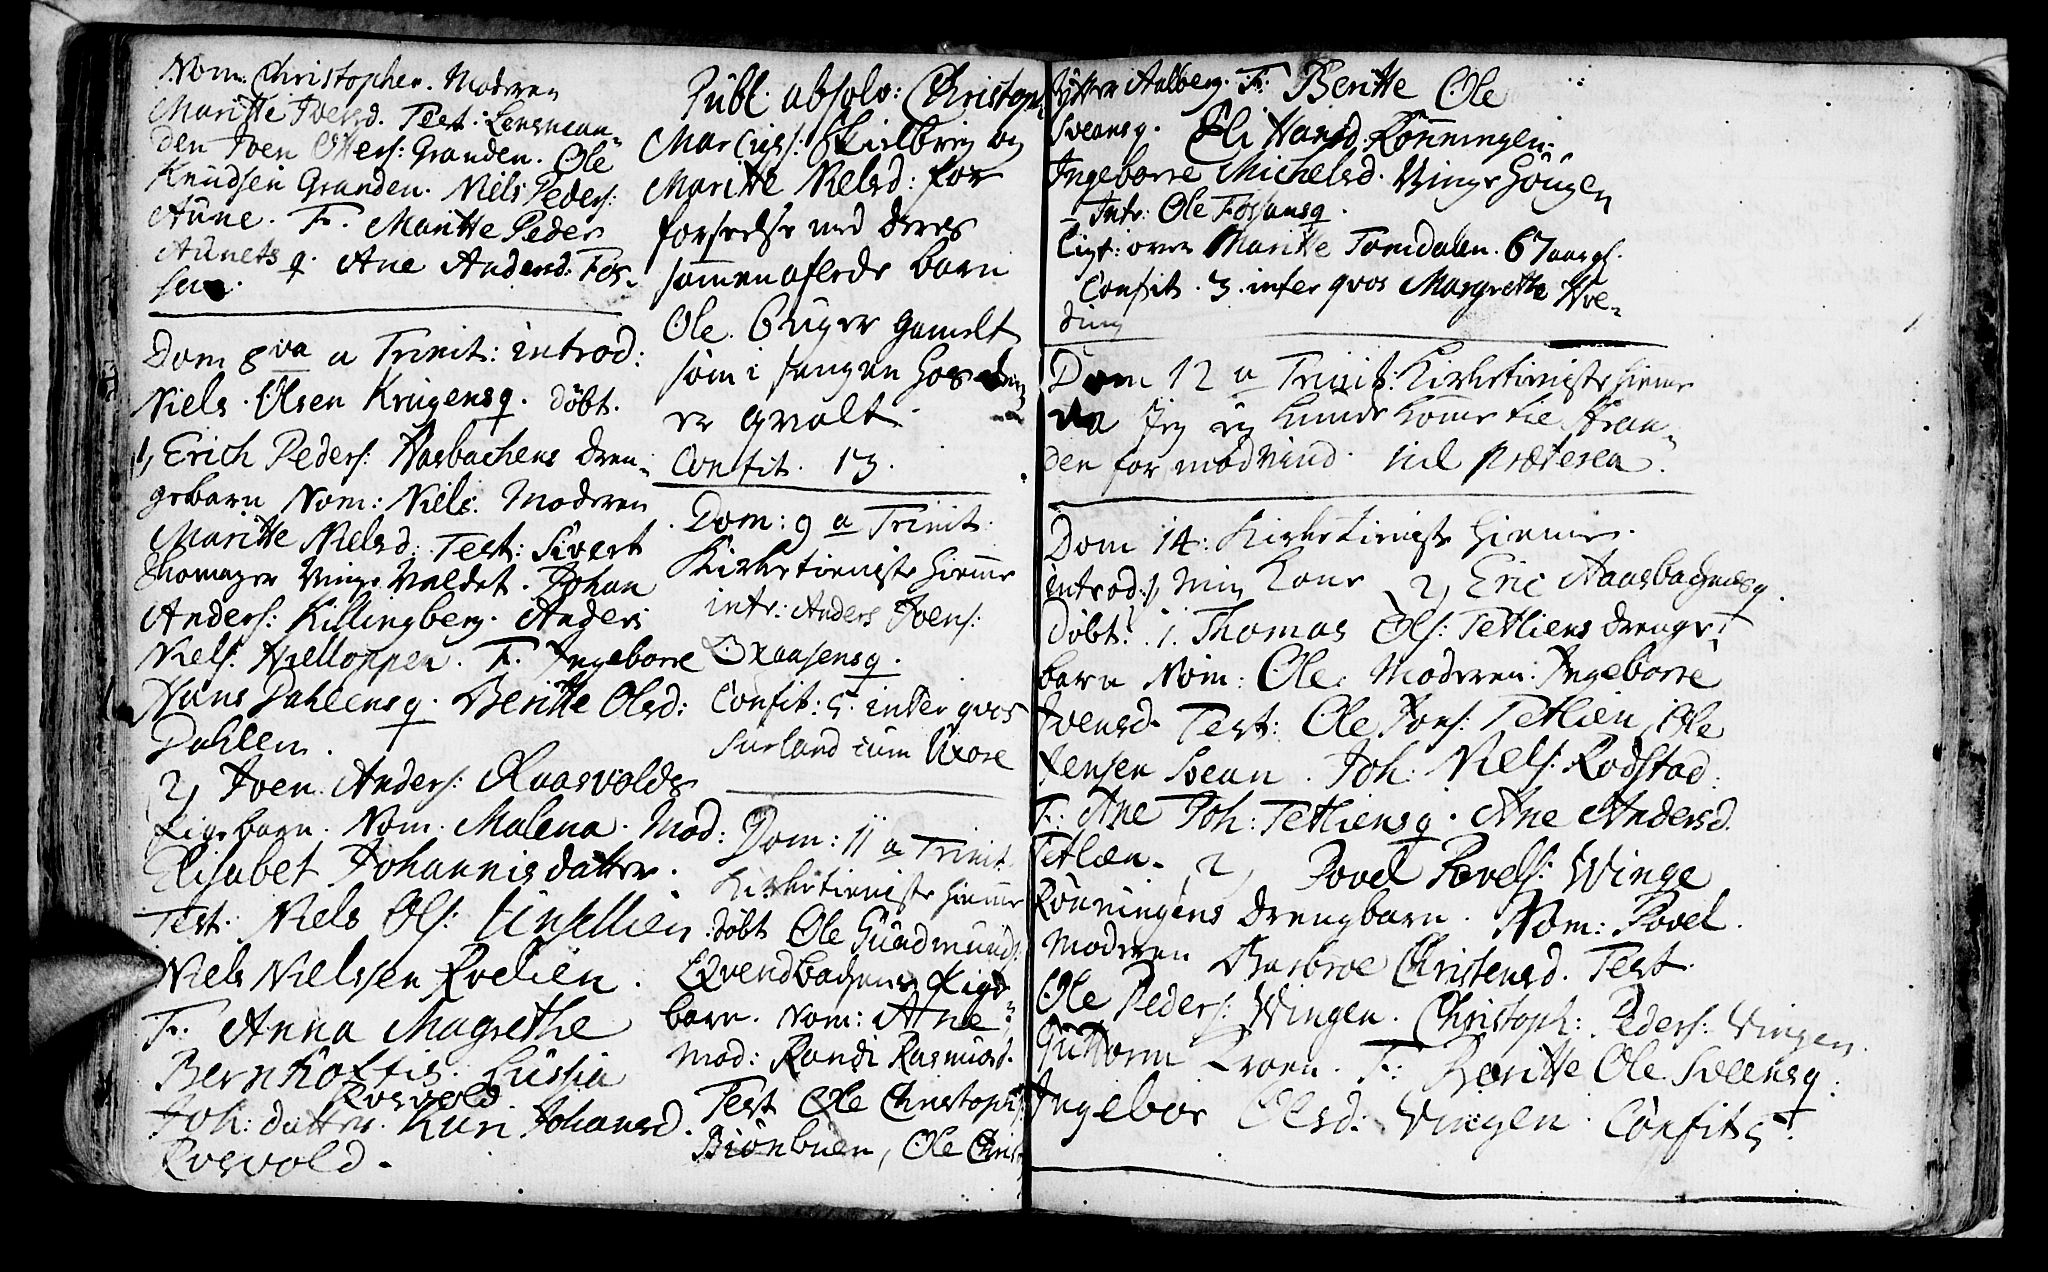 Nom: Christopher. Moderen
Maritte Joensd. Test: Lensman¬
den Joen Otters: Granden. Ole
Knudsen Granden. Niels Peders:
Aune. F. Maritte Peder
Aunets q. Ane Andersd. Fos¬
Dom 8va a Trinit: introd:
Niels Olsen Krugensq. døbt.
1, Erich Peders: Aasbachens dren¬
gebarn Nom: Niels. Moderen
Maritte Nielsd: Test: Sivert
Vinge Valdet. Johan
Anders: Killingberg. Anders
Niels: F. Ingeborre
Hans Dahlensq. Beritte Olsd:
Dahlen.
2, Joen Anders: Raasvolds
Pigebarn. Nom. Malena. Mod:
Elisabet Johannisdatter.
Test: Niels Ols:
Niels Nielssen Roelien.
F. Anna Magrethe
Bernhoftis. Lussia
Rosvold
Joh: datter. Kari Johansd.
Rosvold.
Publ. absolv: Christoph
Marcuss: Skielbrej og
Maritte Nielsd: for
forseelse med deres
sammenaflede barn
Ole. 6 uger gamelt
som i sengen hos dem
er qvalt.
Confit. 13.
Dom: 9 a Trinit.
Kirketieniste hiemme
intr: Anders Joens:
Confit: 5. inter qvos
Surland cum Uxore
Dom: 11 a Trinit.
Kirketieniste hiemme
døbt Ole Gudmunds:
Qvendbachens Pige¬
barn. Nom: Ane¬
Mod: Randi Rasmusd.
Test Ole Christoph:
Biønbuen, Ole Christ
Aalberg. F: Beritte Ole
Sveansq. Eli Hansd. Rønningen.
Ingeborre Michelsd. Vinge Hougen
Intr: Ole Fossansq.
Ligt: over Maritte Tomdalen. 67 aar gl.
Confit. 3. inter qvos Margrethe Hve¬
ding
Dom 12 a Trinit: Kirketieniste hiemme
da Jeg ej kunde komme til Stran¬
den for modvind. vid præterea.
Dom 14: Kirketieniste hiemme.
introd: 1, Min Kone 2, Eric Aaasbachensq.
Døbt: 1. Thomas Ols: Tetliens drenge¬
barn Nom: Ole. Moderen: Ingeborre
Joensd. Test: Ole Jons: Tetlien, Ole
Jensen Svean. Joh: Niels: Rødstad.
F. Ane Joh: Tetliensq. Ane Andersd.
Tetlæn. 2, Povel Povels: Winge
Rønningens drengbarn. Nom: Povel.
Moderen Barbroe Christensd. Test.
Ole Peders: Wingen. Christoph: Peders: Vingen.
Guttorm Kroen. F: Beritte Ole Sveensq.
Ingebor Olsd: Vingen. Confit: 5.